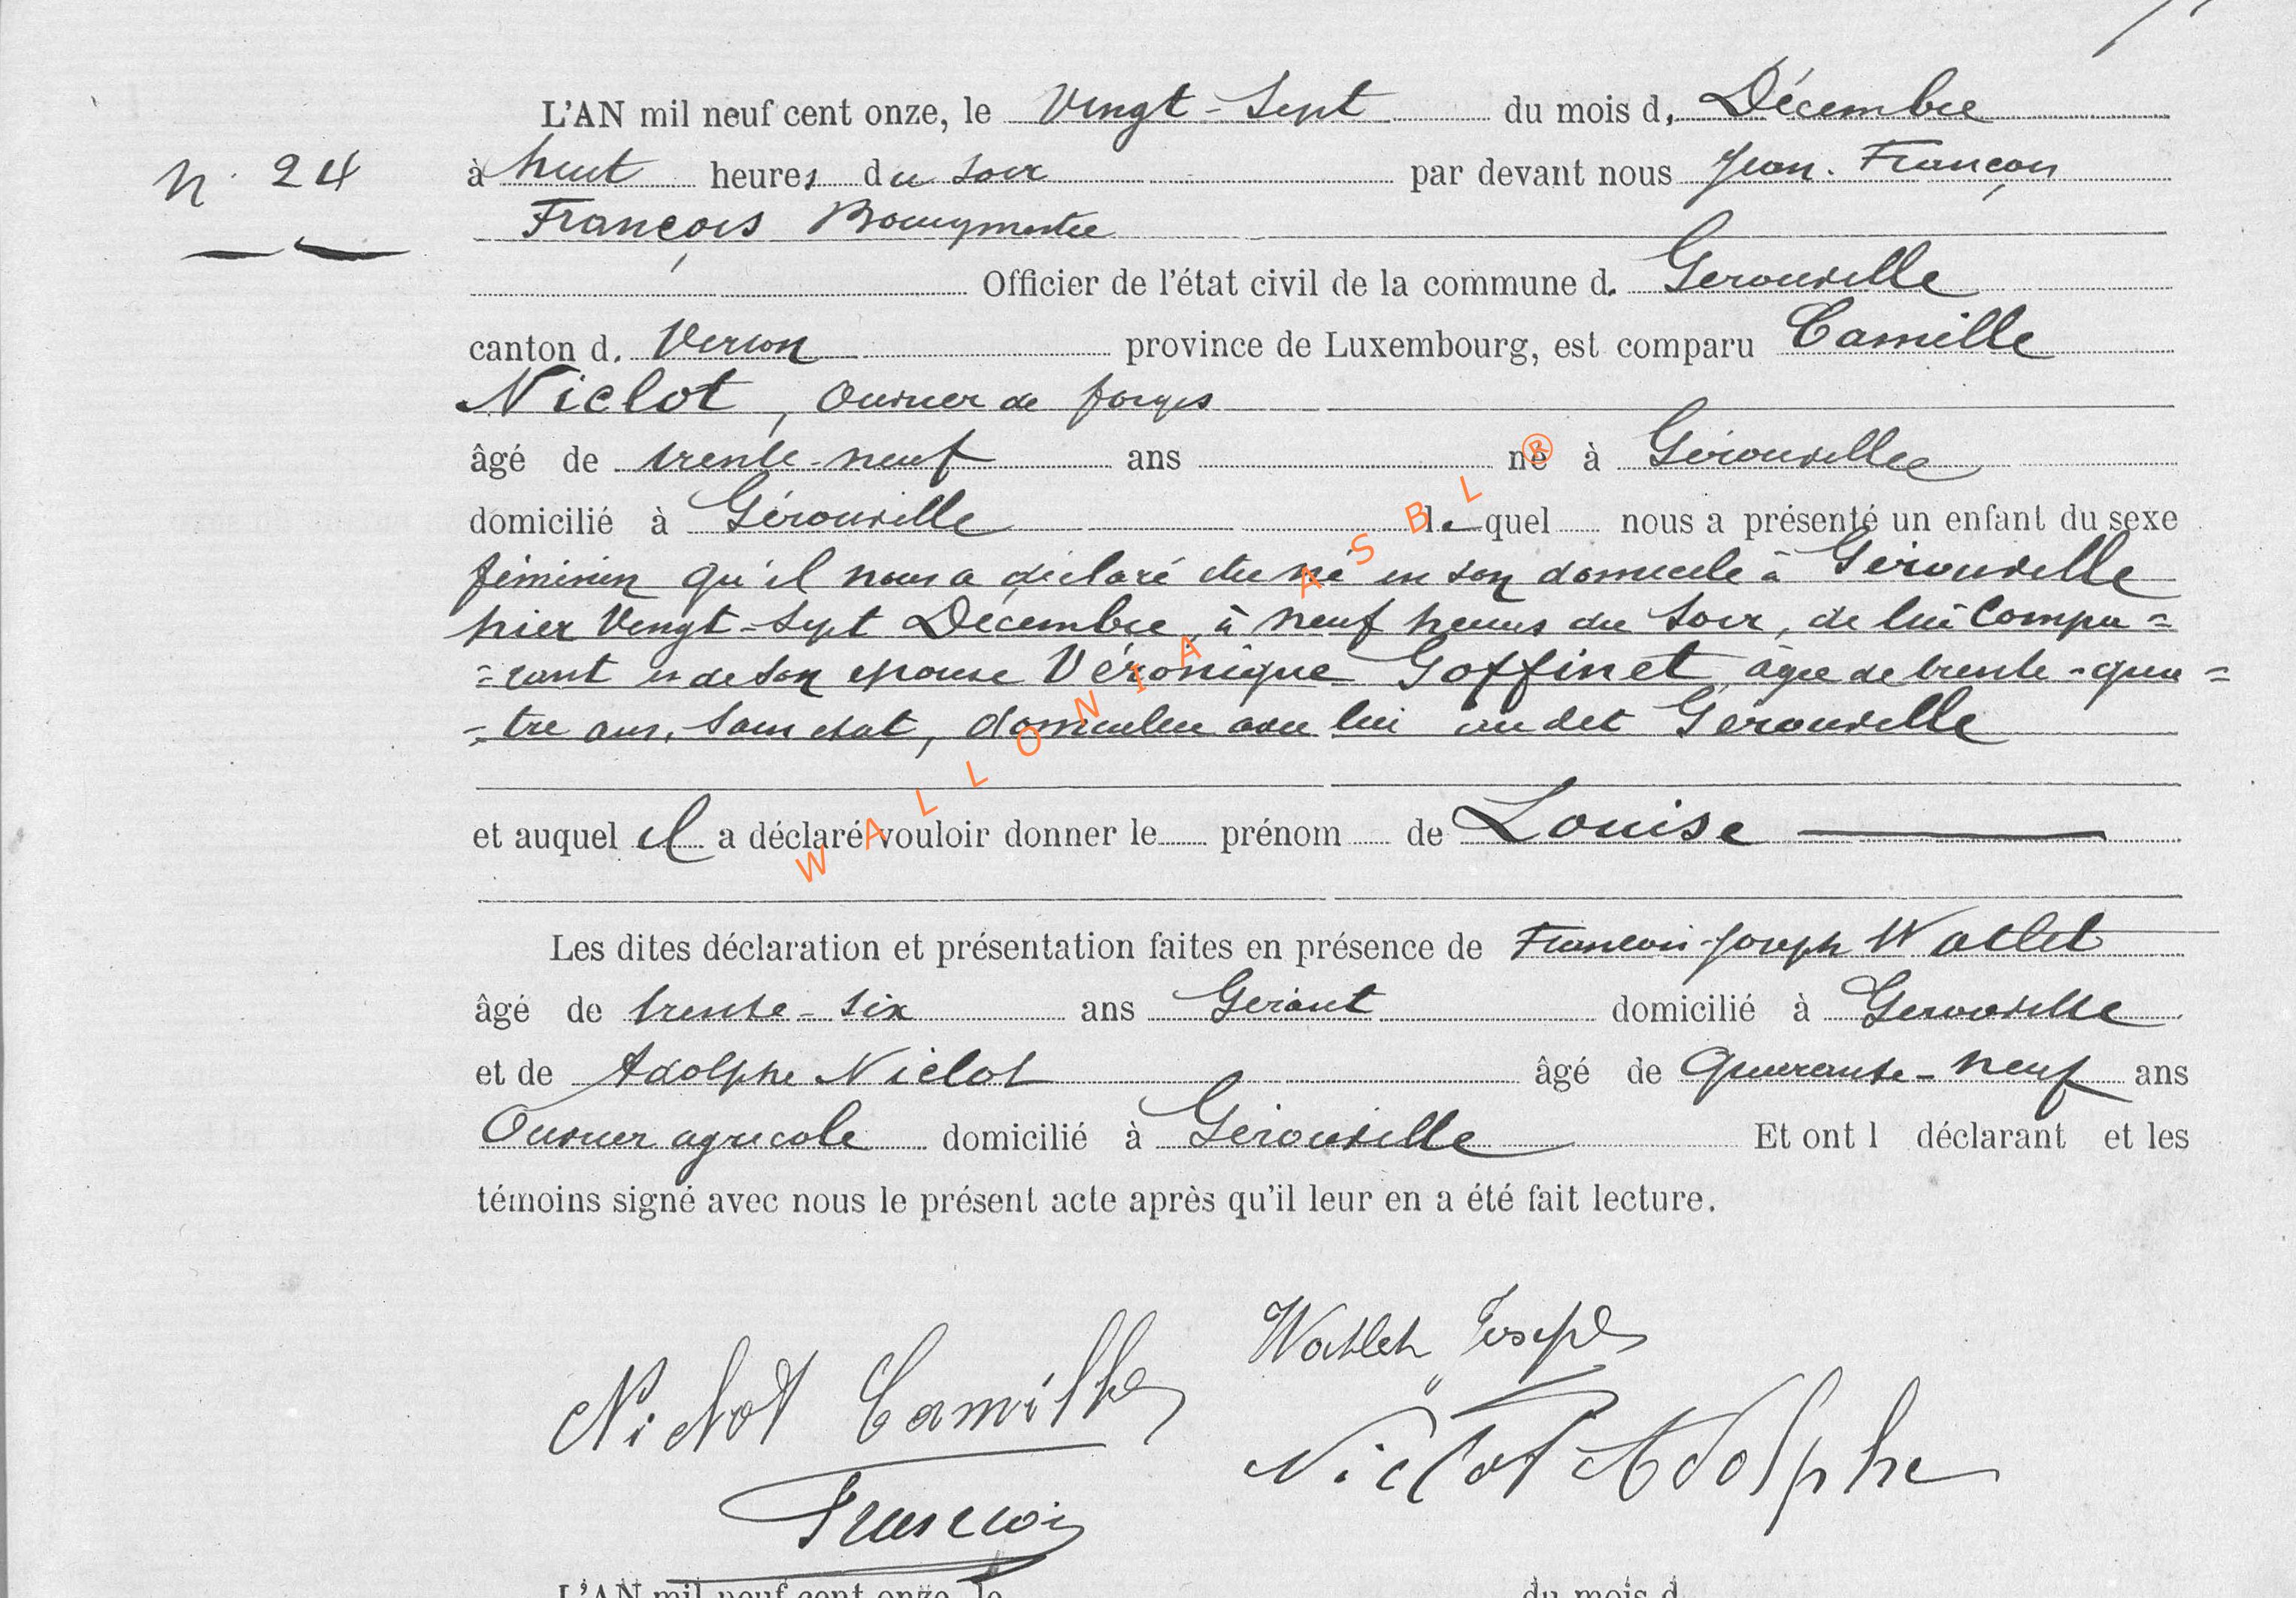 L'AN mil neuf cent onze, le Vingt-Sept du mois d. Décembre
N. 24 à huit heures du soir par devant nous Jean. François
François Bourgmestre
Officier de l'état civil de la commune d. Gerouville
canton d. Virton province de Luxembourg, est comparu Camille
Niclot, Ouvrier de forges
âgé de trente-neuf ans né à Gérouville
domicilié à Gérouville lequel nous a présenté un enfant du sexe
féminin qu'il nous a déclaré être né en son domicile à Gérouville
hier Vingt-Sept Décembre, à neuf heures du soir, de lui Compa=
=rant et de son épouse Véronique Goffinet, âgée de trente-qua=
=tre ans, sans état, domiciliée avec lui au dit Gérouville
et auquel il a déclaré vouloir donner le prénom de Louise
Les dites déclaration et présentation faites en présence de François-Joseph Watlet
âgé de trente-six ans Gérant domicilié à Gerouville
et de Adolphe Niclot âgé de Quarante-neuf ans
Ouvrier agricole domicilié à Gérouville Et ont l déclarant et les
témoins signé avec nous le présent acte après qu'il leur en a été fait lecture.
Watlet Joseph
Niclot Camille
Niclot Adolphe
François
L'AN mil neuf cent onze, le du mois d
WALLONIA ASBL ®